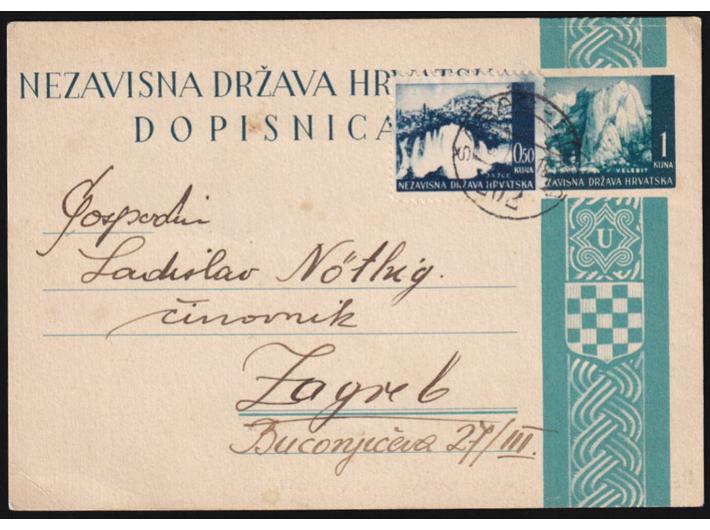 NEZAVISNA DRŽAVA
DOPISNICA
JAJCE
0.50
KUNA
NEZAVISNA DRŽAVA HRVATSKA
VELEBIT
1
KUNA
ZAVISNA DRŽAVA HRVATSKA
U
Gospodin
Ladislav Nöthig.
činovnik
Zagreb
Buconjićeva 27/III.